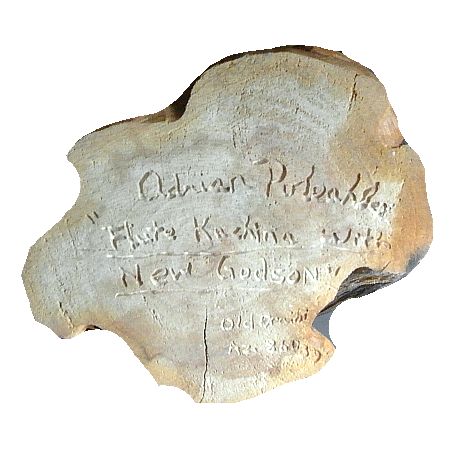 Adrian Poleahla
"Flute Kachina With
New Godson"
Old Oraibi
Aez. 86039